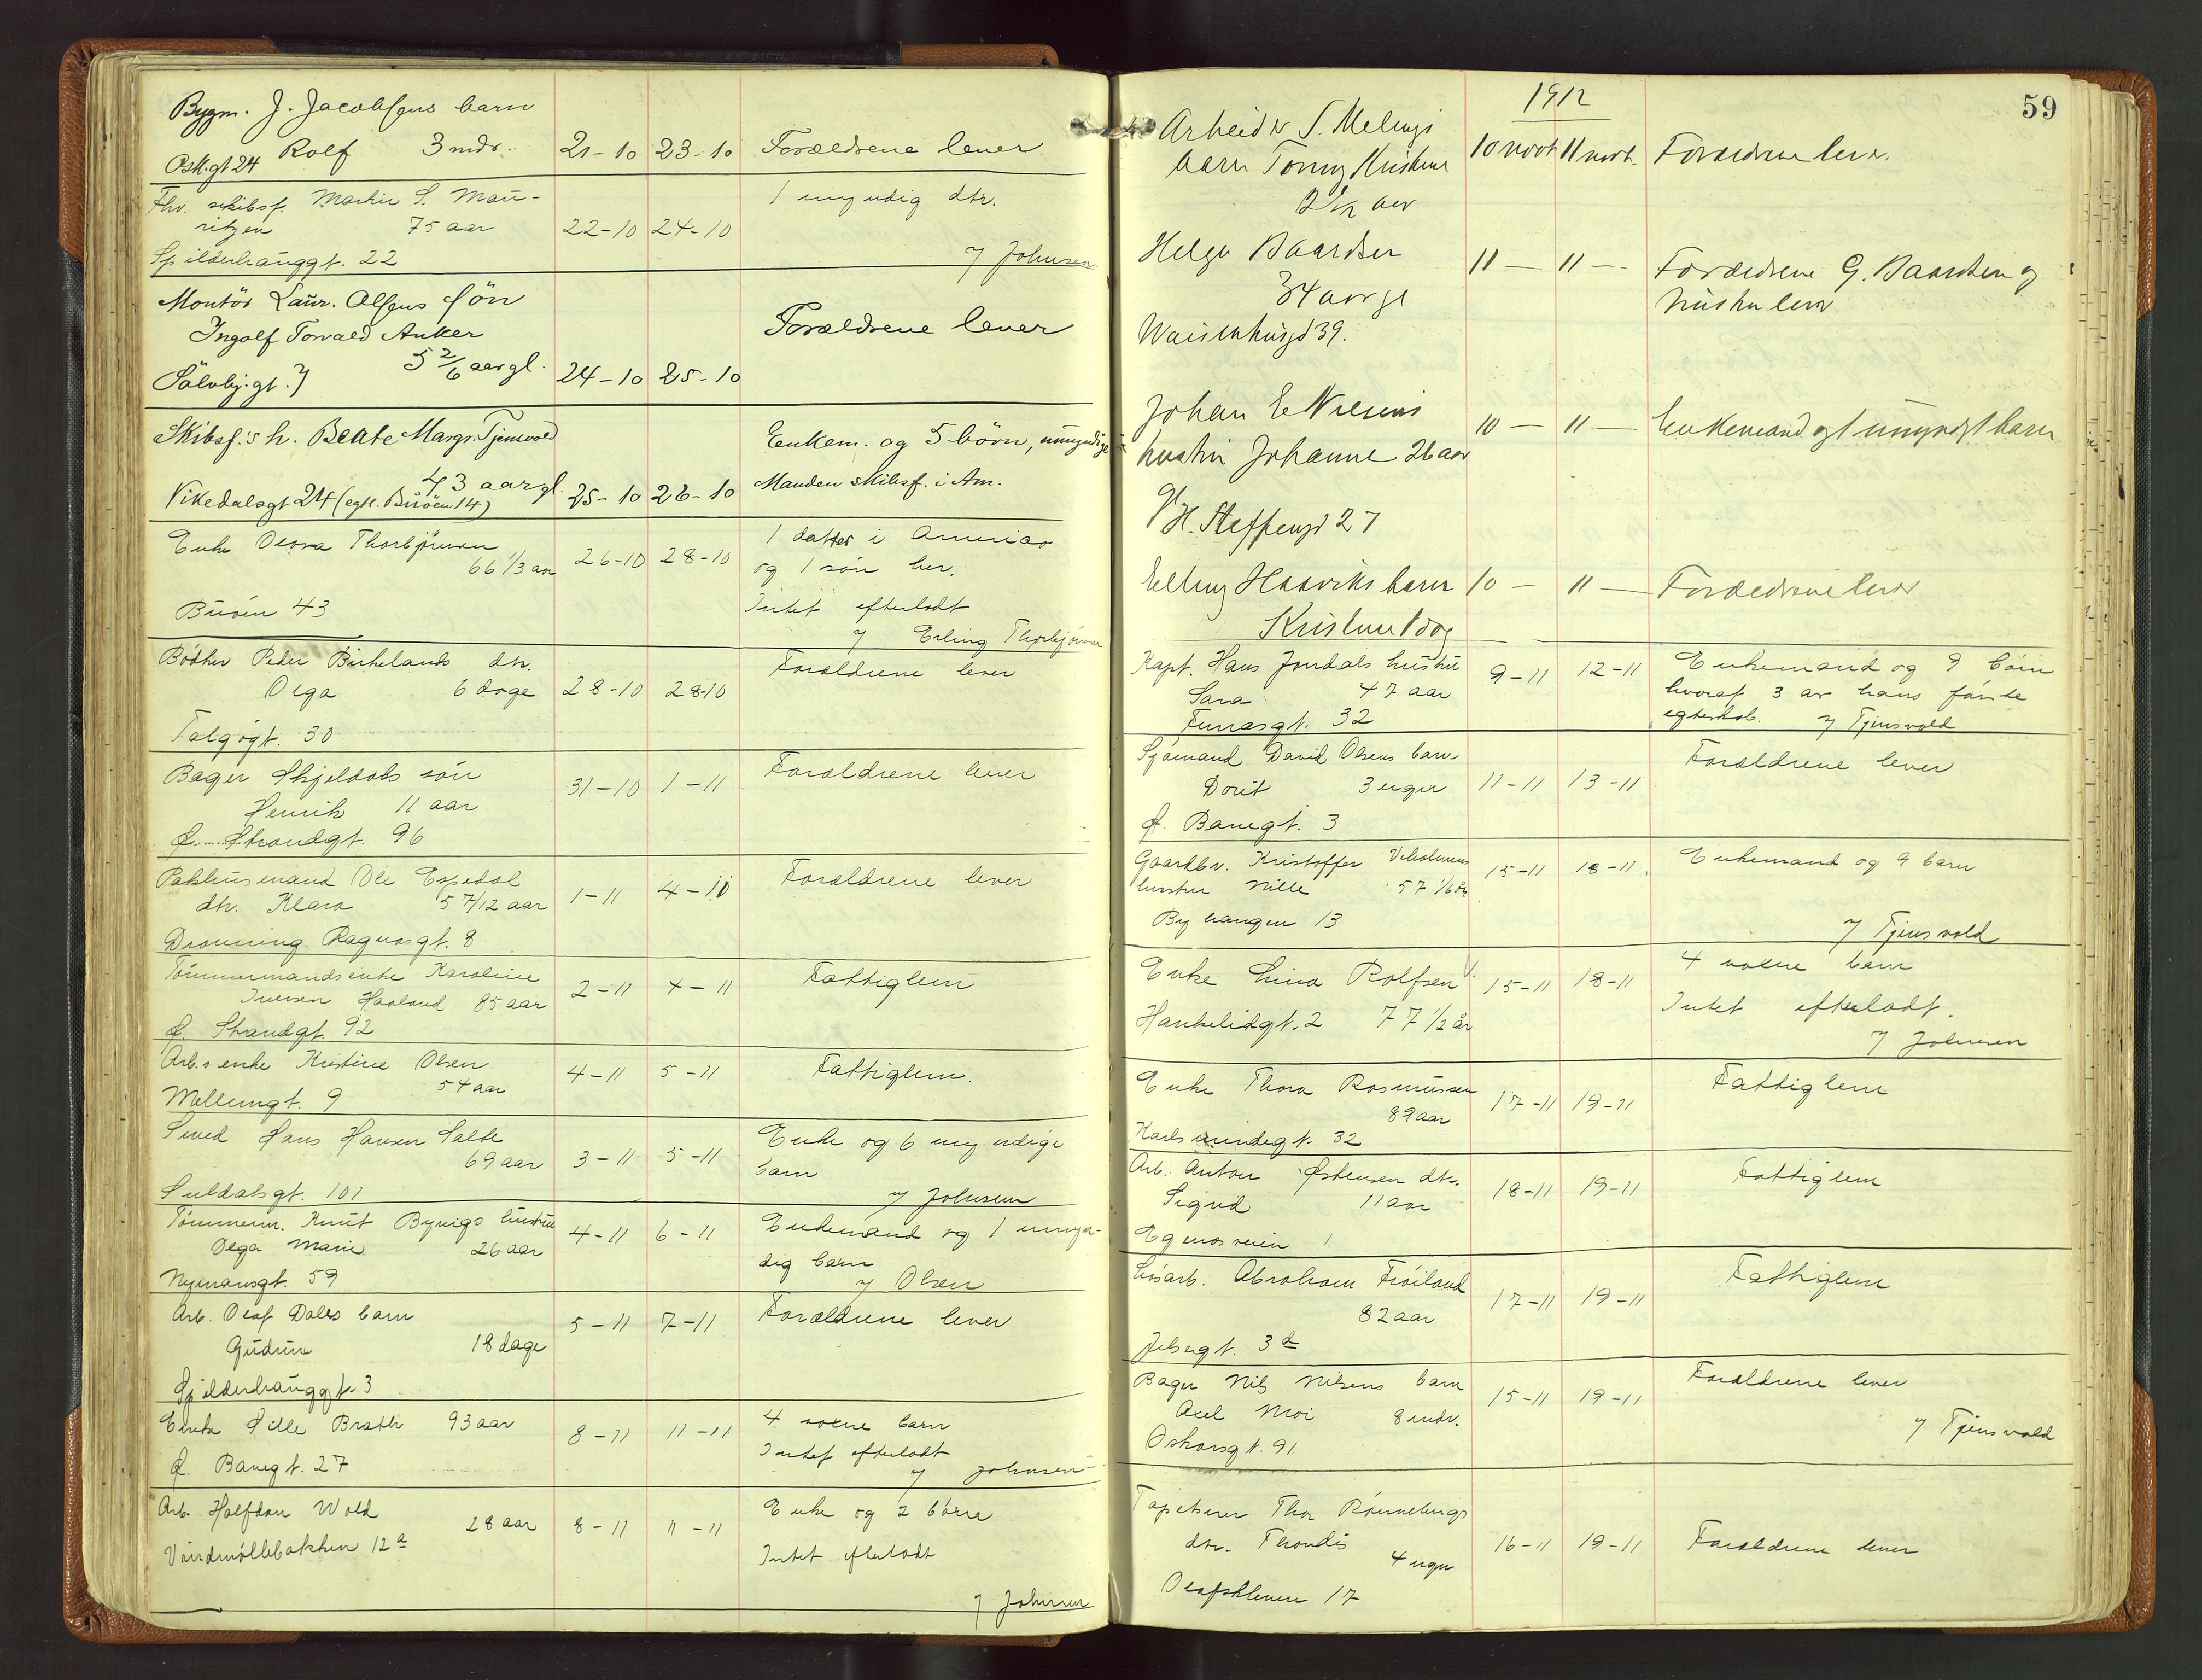 Bygm. J. Jacobsens barn
Rolf 3 mdr. 21-10 23-10 Forældrene lever
Osk.gt 24
Fhv. skibsf. Martin S. Mau-
ritzen 75 aar 22-10 24-10 1 myndig dtr.
Spilderhauggt. 22
/ Johnsen
Montör Laur. Olsens sön
Ingolf Torvald Anker Forældrene lever
5 2/6 aar gl.
Sölvbj.gt. 7 24-10 25-10
Skibsf.'s h. Beate Margr. Tjensvold Enkem. og 5 börn, umyndige
43 aar gl. Manden skibsf. i Am.
Vikedalsgt 24 (egtl. Buöen 14) 25-10 26-10
Enke Olova Thorbjörnsen 1 datter i Amerika
66 1/3 aar 26-10 28-10 og 1 sön her.
Buöen 43 Intet efterladt
/ Erling Thorbjörnsen
Bödker Peder Birkelands dtr. Forældrene lever
Olga 6 dage 28-10 28-10
Talgögt. 30
Bager Skjeldals sön Forældrene lever
Henrik 11 aar 31-10 1-11
Ø. Strandgt. 96
Pakhusmand Ole Espedal Forældrene lever
dtr. Klara 5 7/12 aar 1-11 4-11
Dronning Ragnas gt. 8
Tömmermands enke Karoline Fattiglem
Iversen Haaland 85 aar 2-11 4-11
Ø. Strandgt. 92
Arb.s enke Kristine Olsen Fattiglem.
54 aar 4-11 5-11
Mellemgt. 9
Smed Hans Hansen Salte Enke og 6 myndige
69 aar 3-11 5-11 barn
Suldalsgt. 101 / Johnsen
Tömmerm. Knut Byvigs hustru Enkemand og 1 umyn-
Olga Marie 26 aar 4-11 6-11 dig barn
Nymansgt. 59 / Olsen
Arb. Olaf Dales barn Forældrene lever
Gudrun 18 dage 5-11 7-11
Spilderhauggt. 3
Enke Sille Bratli 93 aar 4 voxne barn
8-11 11-11 Intet efterladt
Ø. Banegt. 27 / Johnsen
Arb. Halfdan Wold 28 aar Enke og 2 börn
8-11 11-11
Vindmöllebakken 12 a Intet efterladt
/ Johnsen
59
1912
Arbeider S. Melings
barn Tonny Kristine 10 novbr 11 novbr. Forældrene lever.
2 1/2 aar
Helga Baardsen 11 — 11 — Forældrene G. Baardsen og
34 aar gl hustru lever
Waisenhusgd 39.
Johan E Nilsens 10 — 11 — Enkemand og 1 umyndigt barn
hustru Johanne 26 aar
H. Steffensgd 27
Elling Haaviks barn 10 — 11 — Forældrene lever
Kristine 1 dag
Kapt. Hans Jondals hustru Enkemand og 9 börn
Sara 47 aar 9-11 12-11 hvoraf 3 av hans förste
Funasgt. 32 egteskab. / Tjensvold
Sjömand David Olsens barn Forældrene lever
Dorit 3 uger 11-11 13-11
Ø. Banegt. 3
Gaardbr. Kristoffer Viholmens Enkemand og 9 barn
hustru Nille 57 1/6 år 15-11 18-11
Byhaugen 13
/ Tjensvold
Enke Lina Rolfsen 15-11 18-11 4 voxne barn
Intet efterladt.
Haukelidgt. 2 77 1/2 år
/ Johnsen
Enke Thora Rasmussen Fattiglem
89 aar 17-11 19-11
Karlsmindegt. 32
Arb. Anton Østensen dtr. Fattiglem
Sigrid 11 aar 18-11 19-11
Egenæsveien 1
Lösarb. Abraham Fröiland Fattiglem
82 aar 17-11 19-11
Jelsagt. 3 d
Bager Nils Nilsens barn Forældrene lever
Axel Moi 8 mdr. 15-11 19-11
Oskarsgt. 91 / Tjensvold
Tapetserer Thor Rönnebergs
dtr. Thordis 16-11 19-11 Forældrene lever
4 uger
Olafskleven 17